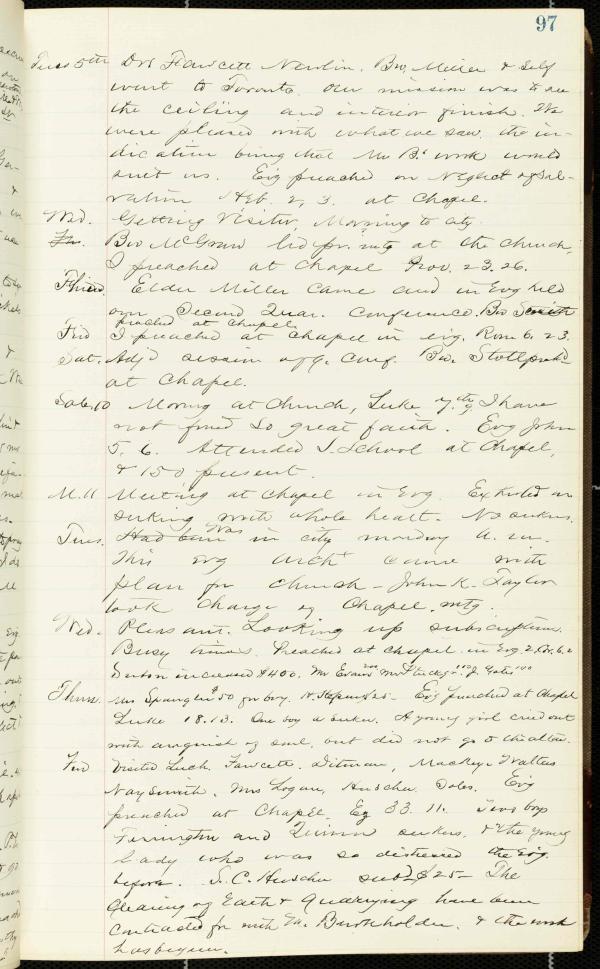 97
Tues 5th Drs Fawcett Newlin, Bro. Miller & Self
went to Toronto. Our mission was to see
the ceiling and interior finish. We
were pleased with what we saw, the in-
dication being that Mr B's work would
suit us. Evg preached on Neglect of Sal-
vation Heb. 2, 3. at Chapel.
Wed. Getting Visitor, Morning to city.
Bro McGraw led pr. mtg at the church,
I preached at Chapel Prov. 23. 26.
Thurs. Elder Miller came and in Evg held
our Second Quar. Conference. Bro Smith
preached at chapel.
Frid I preached at chapel in evg. Rom 6. 23.
Sat. Adj'd session of Q. Conf. Bro. Stoll prchd
at Chapel.
Sab. 10 Morning at Church, Luke 7. 9 I have
not found so great faith. Evg John
5. 6. Attended S. School at Chapel,
& 150 present.
M. 11 Meeting at Chapel in Evg. Exhorted on
seeking with whole heart. No seekers.
Tues. Had been was in city monday A. M.
This evg Archt came with
plan for church – John K. Taylor
took charge of Chapel mtg.
Wed. Pleasant. Looking up subscription.
Busy times. Preached at chapel in Evg. 2 Cor. 6. 2
increased $400. Mr Evans Mr J. Gates
Thurs. Mrs Spangler $50 for boy. $25 – Evg preached at Chapel
Luke 18. 13. One boy a seeker. A young girl cried out
with anguish of soul, but did not go to the altar.
Frid Visited Fawcett, Ditman, Mackey, Walters
Naysmith, Mrs Logan, Huscher, Soles. Evg
preached at Chapel, Ez 33. 11. Two boys
Farrington and Quinn seekers, & the young
lady who was so distressed the evg.
before. S. C. Huscher subd $25 – The
clearing of Earth & Quarrying have been
contracted for with Burkholder, & the work
has begun.